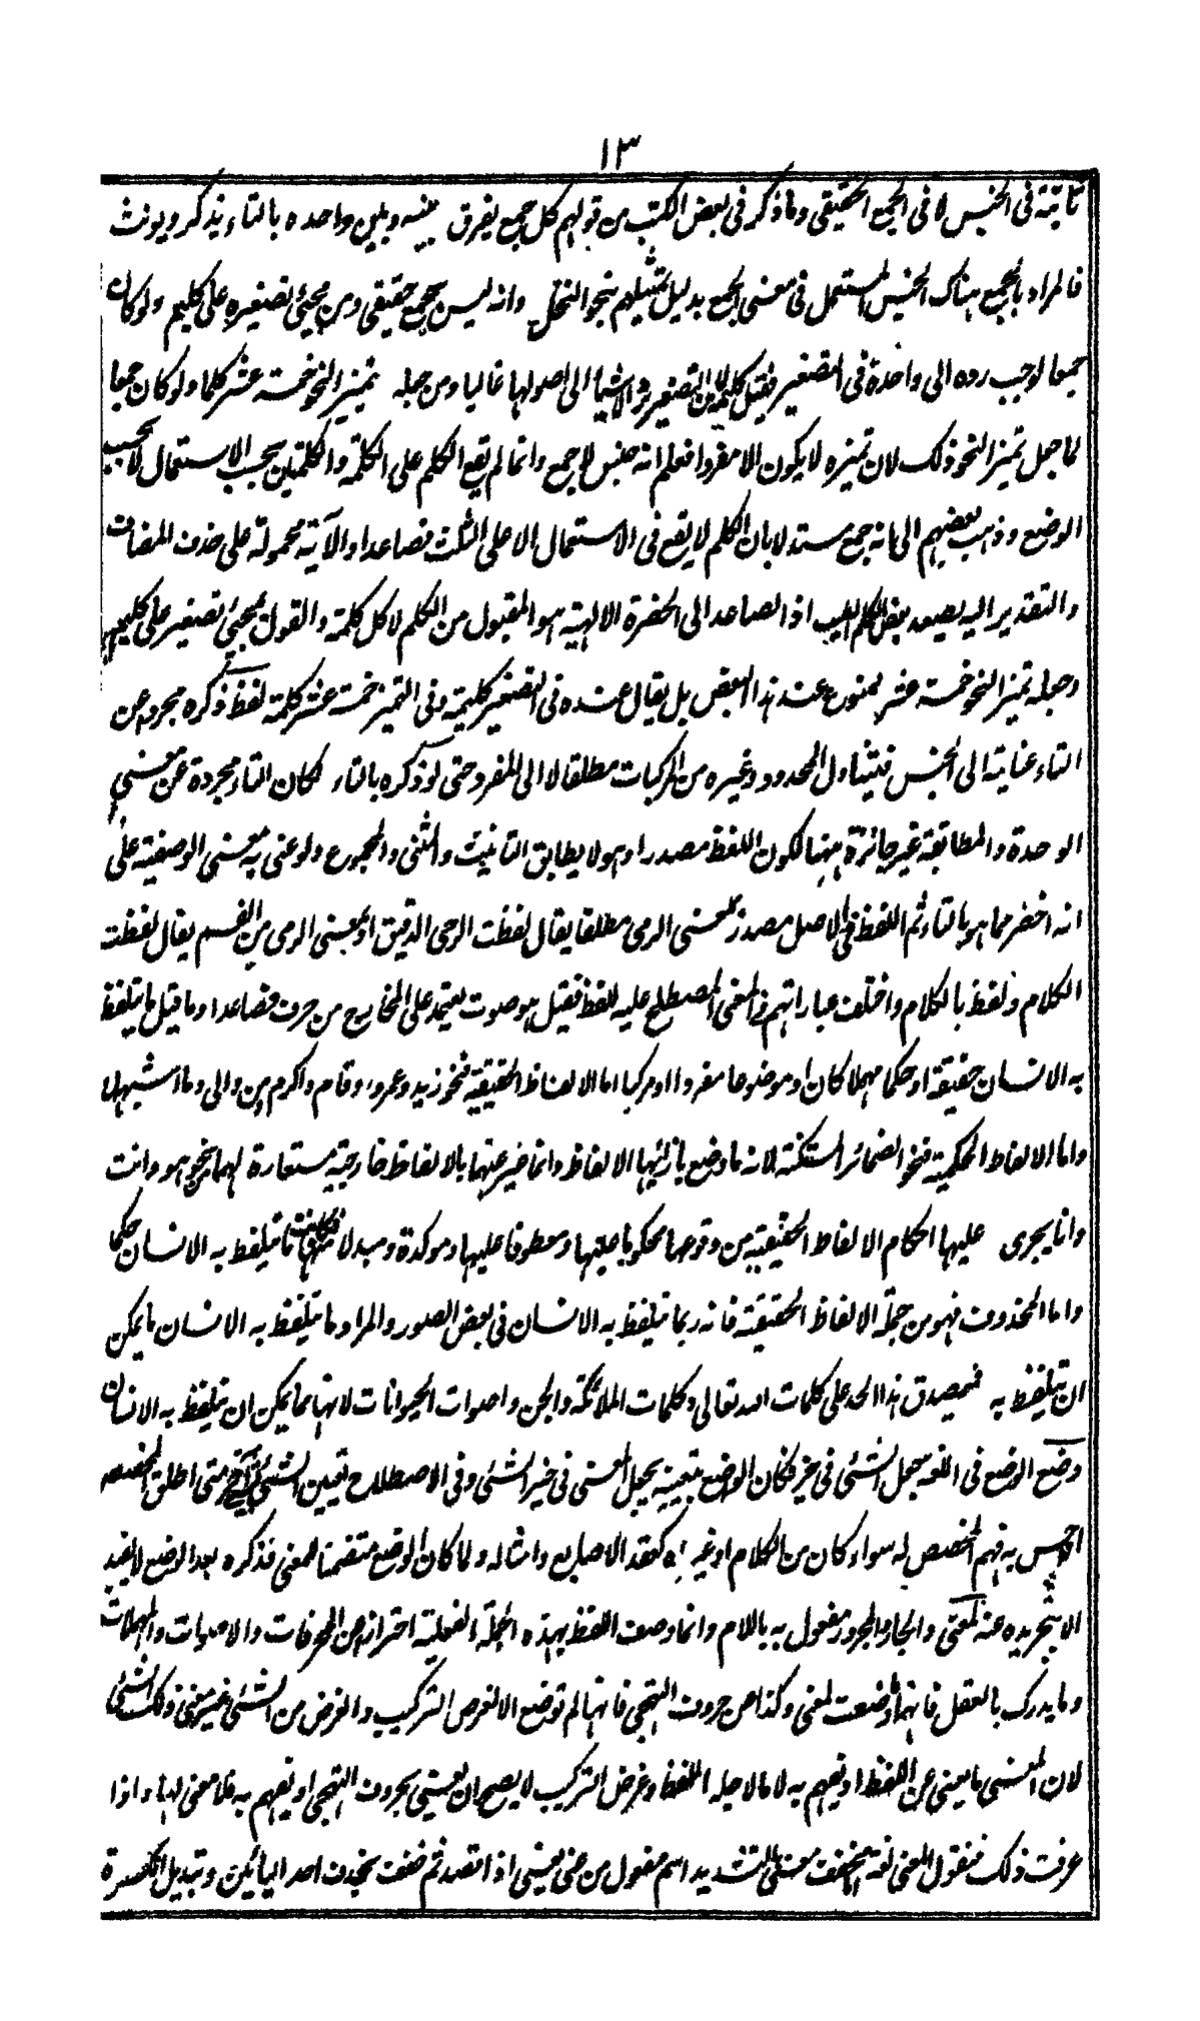 ١٣
ثابتة فى الجنس لا فى الجمع الحقيقى وما ذكر فى بعض الكتب من قولهم كل جمع يفرق بينه وبين واحده بالتاء يذكر ويونث
فالمراد بالجمع هناك الجنس المستعمل فى معنى الجمع بدليل تمثيلهم بنحو النخل وانه ليس بجمع حقيقى ومن مجيئ تصغيره على كليم ولو كان
جمعا لوجب رده الى واحده فى التصغير فقيل كليمة لان التصغير يرد الاشياء الى اصولها غالبا ومن جعله تميز النحو خمسة عشر كلما ولو كان جمعا
لما جعل تميز النحو ذلك لان تميزه لا يكون الا مفردا فعلم انه جنس لا جمع وانما لم يقع الكلم على الكلمة والكلمتين بحسب الاستعمال لا بحسب
الوضع وذهب بعضهم الى انه جمع مستدلا بان الكلم لا يقع فى الاستعمال الا على الثلث فصاعدا والآية محمولة على حذف المضاف
والتقدير اليه يصعد بعض الكلم الطيب اذ الصاعد الى الحضرة الالهية هو المقبول من الكلم لا كل كلمة والقول بمجيئ تصغيره على كليم
وجعله تميز النحو خمسة عشر ممنوع عند هذا البعض بل يقال عنده فى التصغير كليمة وفى التميز خمسة عشر كلمة لفظ ذكره مجردا عن
التاء عناية الى الجنس فيتناول المحدود وغيره من المركبات مطلقا لا الى المفرد حتى لو ذكره بالتاء لكان التاء مجردة عن معنى
الوحدة والمطابقة غير جائزة ههنا لكون اللفظ مصدرا وهو لا يطابق التانيث والمثنى والمجموع ولو عنى به معنى الوصفية على
انه اخضر مما هو بالتاء ثم اللفظ فى الاصل مصدر بمعنى الرمى مطلقا يقال لفظت الرحى الدقيق او بمعنى الرمى من الفم يقال لفظت
الكلام ولفظ بالكلام واختلف عباراتهم فى المعنى المصطلح عليه للفظ فقيل هو صوت يعتمد على المخارج من حرف فصاعدا وما قيل ما يتلفظ
به الانسان حقيقة او حكما مهملا كان او موضوعا مفردا او مركبا اما الالفاظ الحقيقية فنحو زيد وعمرو وقام واكرم من والى وما اشبهها
واما الالفاظ الحكمية فنحو الضمائر المستكنة لانه ما وضع بازائها الالفاظ وانما عبر عنها بالالفاظ خارجية مستعارة لها من نحو هو وانت
وانا يجرى عليها احكام الالفاظ الحقيقية من وقوعها محكوما عليها ومعطوفا عليها وموكدة ومبدلا منها فكانت ما يتلفظ به الانسان حكما
واما المحذوف فهو من جملة الالفاظ الحقيقة فانه ربما يتلفظ به الانسان فى بعض الصور والمراد ما يتلفظ به الانسان ما يمكن
ان يتلفظ به فيصدق هذا الحد على كلمات الله تعالى وكلمات الملائكة والجن واصوات الحيوانات لانها مما يمكن ان يتلفظ به الانسان
وضع الوضع فى اللغة جعل الشئ فى حيز فكان الوضع بتعيينه يجعل المعنى فى حيز الشئ وفى الاصطلاح تعيين الشئ لآخر متى اطلق المخصص
احس به فهم المخصص له سواء كان من الكلام او غيره كعقد الاصابع وامثاله ولما كان الوضع متضمنا لمعنى فذكره بعد الوضع لا يفيد
الا بتجريده عنه لمعنى والجار والمجرور مفعول به باللام وانما وصف اللفظ بهذه الجملة الفعلية احترازا عن المحرفات والاصوات والمهملات
وما يدرك بالعقل فانها ما وضعت لمعنى وكذا عن حروف التهجى فانها لم توضع الا لغرض التركيب والغرض من الشئ غير معنى ذلك الشئ
لان المعنى ما يعنى عن اللفظ او يفهم به لا ما لاجله اللفظ وغرض التركيب لا يصح ان يعنى بحروف التهجى او يفهم به فلا معنى لها واذا
عرفت ذلك فنقول المعنى لغة اما مخفف معنى بالتشديد اسم مفعول من عنى يعنى اذا قصد ثم خفف بحذف احد اليائين وتبديل الكسرة